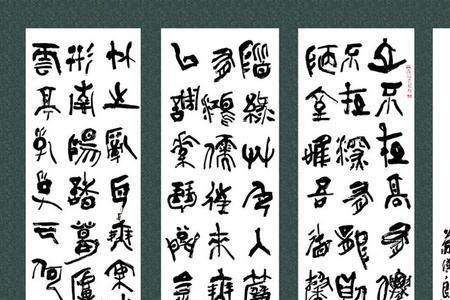 山不在高有仙
不在深有龍則
陋室惟吾德馨
階綠草色入簾
有鴻儒往來無
以調素琴閱金
竹之亂耳無案
形南陽諸葛廬
雲亭孔子云何